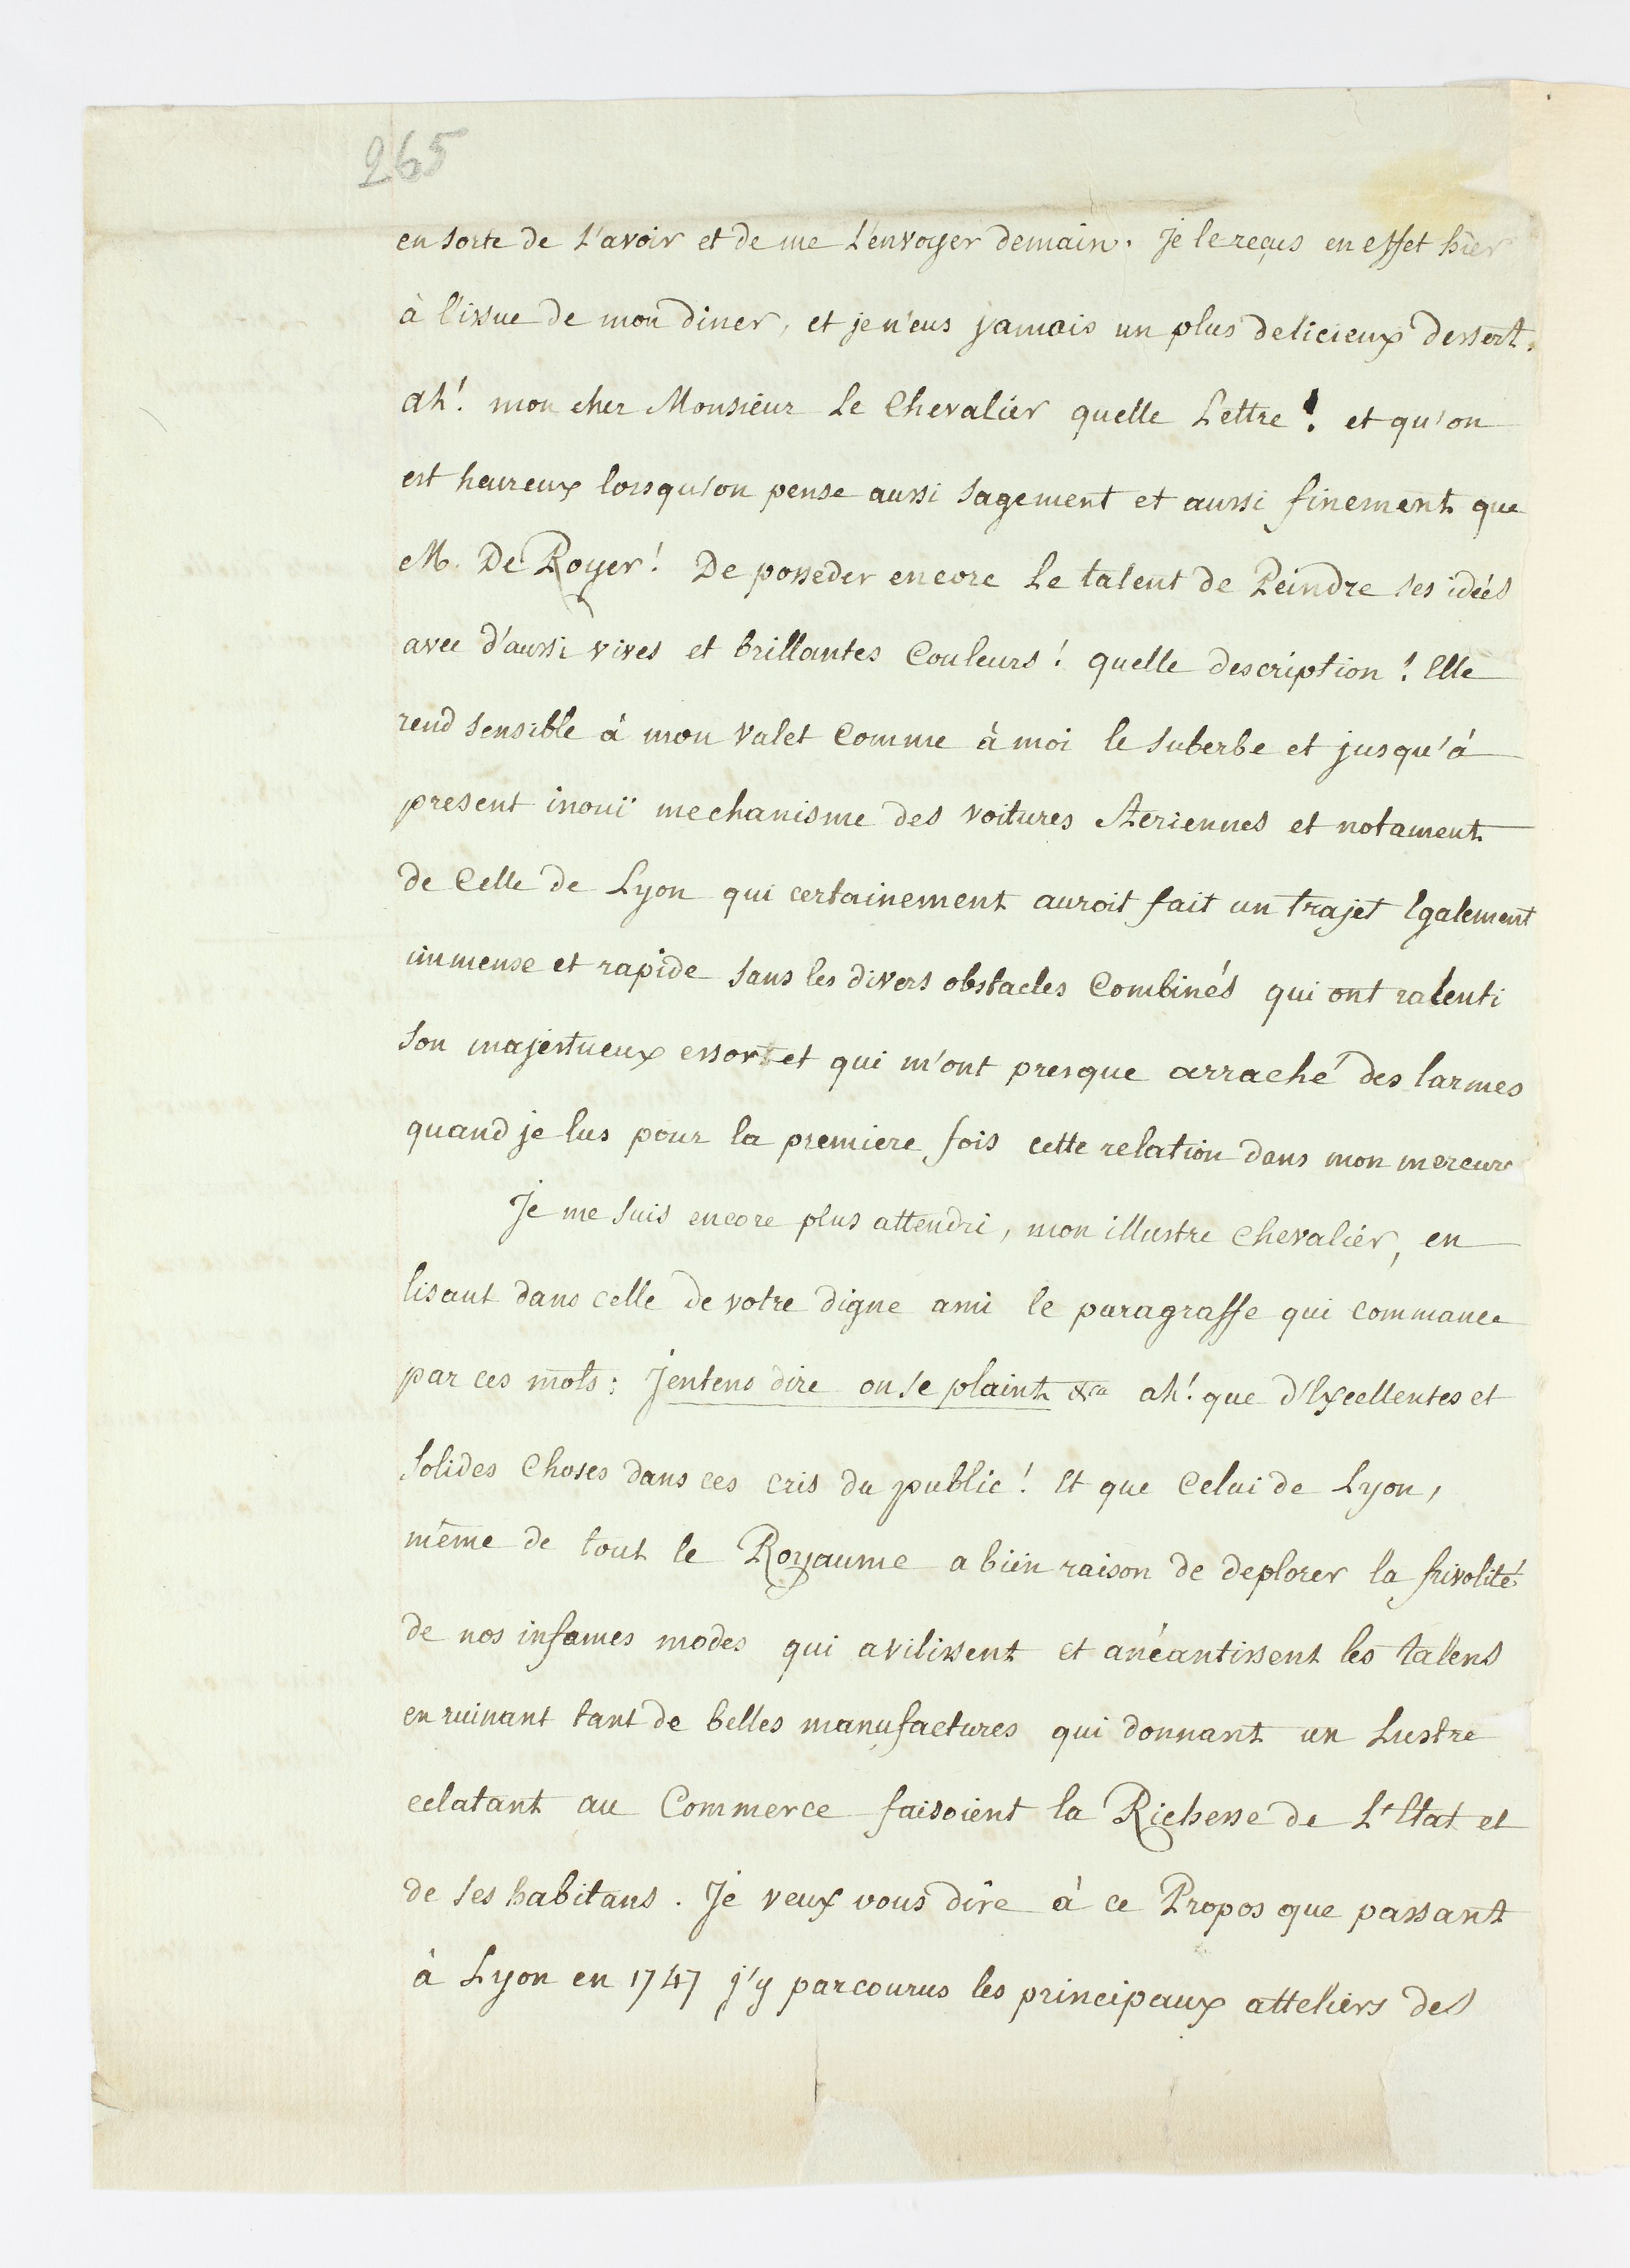 265
en sorte de L'avoir et de me L'envoyer demain. Je le reçus en effet hier
à l'issue de mon diner, et je n'eus jamais un plus delicieux dessert.
ah! mon cher Monsieur Le Chevalier quelle Lettre! et qu'on
est heureux lorsqu'on pense aussi sagement et aussi finement que
M. De Royer! De posseder encore Le talent de Peindre ses idées
avec d'aussi vives et brillantes Couleurs! quelle description! Elle
rend sensible à mon valet Comme à moi le suberbe et jusqu'à
present inouï mechanisme des voitures Aeriennes et notament
de Celle de Lyon qui certainement auroit fait un trajet Egalement
immense et rapide sans les divers obstacles Combinés qui ont ralenti
son majestueux essor et qui m'ont presque arraché des larmes
quand je lus pour la premiere fois cette relation dans mon mercure
Je me suis encore plus attendri, mon illustre Chevalier, en
lisant dans celle de votre digne ami le paragraffe qui commance
par ces mots: J'entens dire on se plaint &ca ah! que d'Excellentes et
solides Choses dans ces cris du public! Et que Celui de Lyon,
même de tout le Royaume a bien raison de deplorer la frivolité
de nos infames modes qui avilissent et anéantissent les talens
en ruinant tant de belles manufactures qui donnant un Lustre
eclatant au Commerce faisoient la Richesse de L'Etat et
de ses habitans. Je veux vous dire à ce Propos que passant
à Lyon en 1747 j'y parcourus les principaux atteliers des